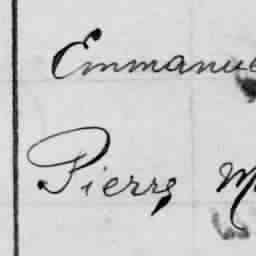 Emmanue
Pierre M